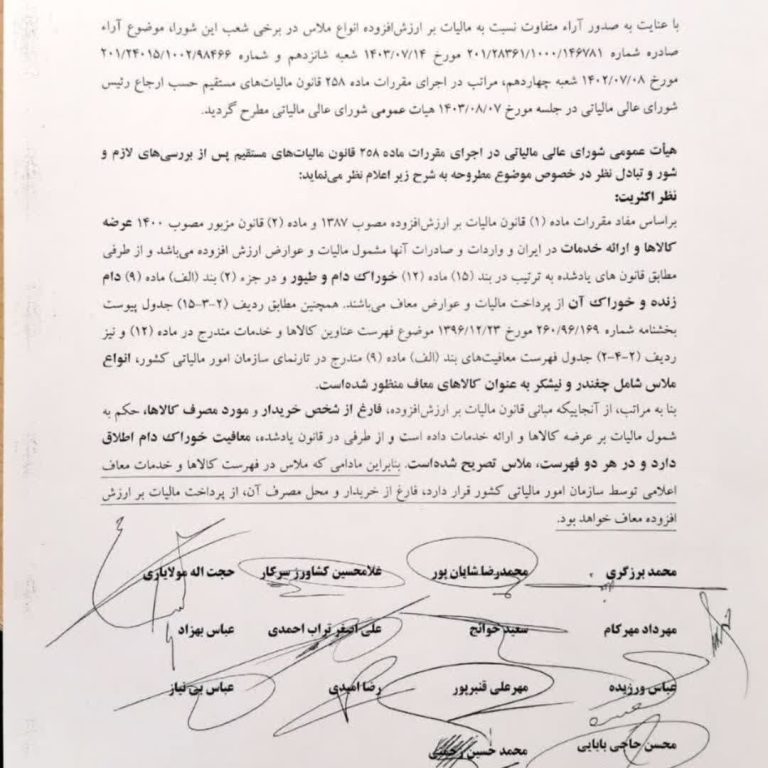 با عنایت به صدور آراء متفاوت نسبت به مالیات بر ارزش‌افزوده انواع ملاس در برخی شعب این شورا، موضوع آراء
صادره شماره ۲۰۱/۲۸۳۶۱/۱۰۰۰/۱۴۶۷۸۱ مورخ ۱۴۰۳/۰۷/۱۴ شعبه شانزدهم و شماره ۲۰۱/۲۴۰۱۵/۱۰۰۲/۹۸۴۶۶
مورخ ۱۴۰۲/۰۷/۰۸ شعبه چهاردهم، مراتب در اجرای مقررات ماده ۲۵۸ قانون مالیات‌های مستقیم حسب ارجاع رئیس
شورای عالی مالیاتی در جلسه مورخ ۱۴۰۳/۰۸/۰۷ هیات عمومی شورای عالی مالیاتی مطرح گردید.
هیأت عمومی شورای عالی مالیاتی در اجرای مقررات ماده ۲۵۸ قانون مالیات‌های مستقیم پس از بررسی‌های لازم و
شور و تبادل نظر در خصوص موضوع مطروحه به شرح زیر اعلام نظر می‌نماید:
نظر اکثریت:
براساس مفاد مقررات ماده (۱) قانون مالیات بر ارزش‌افزوده مصوب ۱۳۸۷ و ماده (۲) قانون مزبور مصوب ۱۴۰۰ عرضه
کالاها و ارائه خدمات در ایران و واردات و صادرات آنها مشمول مالیات و عوارض ارزش افزوده می‌باشد و از طرفی
مطابق قانون های یادشده به ترتیب در بند (۱۵) ماده (۱۲) خوراک دام و طیور و در جزء (۲) بند (الف) ماده (۹) دام
زنده و خوراک آن از پرداخت مالیات و عوارض معاف می‌باشند. همچنین مطابق ردیف (۲-۳-۱۵) جدول پیوست
بخشنامه شماره ۲۶۰/۹۶/۱۶۹ مورخ ۱۳۹۶/۱۲/۲۳ موضوع فهرست عناوین کالاها و خدمات مندرج در ماده (۱۲) و نیز
ردیف (۲-۴-۲) جدول فهرست معافیت‌های بند (الف) ماده (۹) مندرج در تارنمای سازمان امور مالیاتی کشور، انواع
ملاس شامل چغندر و نیشکر به عنوان کالاهای معاف منظور شده‌است.
بنا به مراتب، از آنجاییکه مبانی قانون مالیات بر ارزش‌افزوده، فارغ از شخص خریدار و مورد مصرف کالاها، حکم به
شمول مالیات بر عرضه کالاها و ارائه خدمات داده است و از طرفی در قانون یادشده، معافیت خوراک دام اطلاق
دارد و در هر دو فهرست، ملاس تصریح شده‌است. بنابراین مادامی که ملاس در فهرست کالاها و خدمات معاف
اعلامی توسط سازمان امور مالیاتی کشور قرار دارد، فارغ از خریدار و محل مصرف آن، از پرداخت مالیات بر ارزش
افزوده معاف خواهد بود.
محمد برزگری محمدرضا شایان پور غلامحسین کشاورز سرکار حجت اله مولایاری
مهرداد مهرکام سعید حوائج علی اصغر تراب احمدی عباس بهزاد
عباس ورزیده مهرعلی قنبرپور رضا امیدی عباس بی نیاز
محسن حاجی بابایی محمد حسین